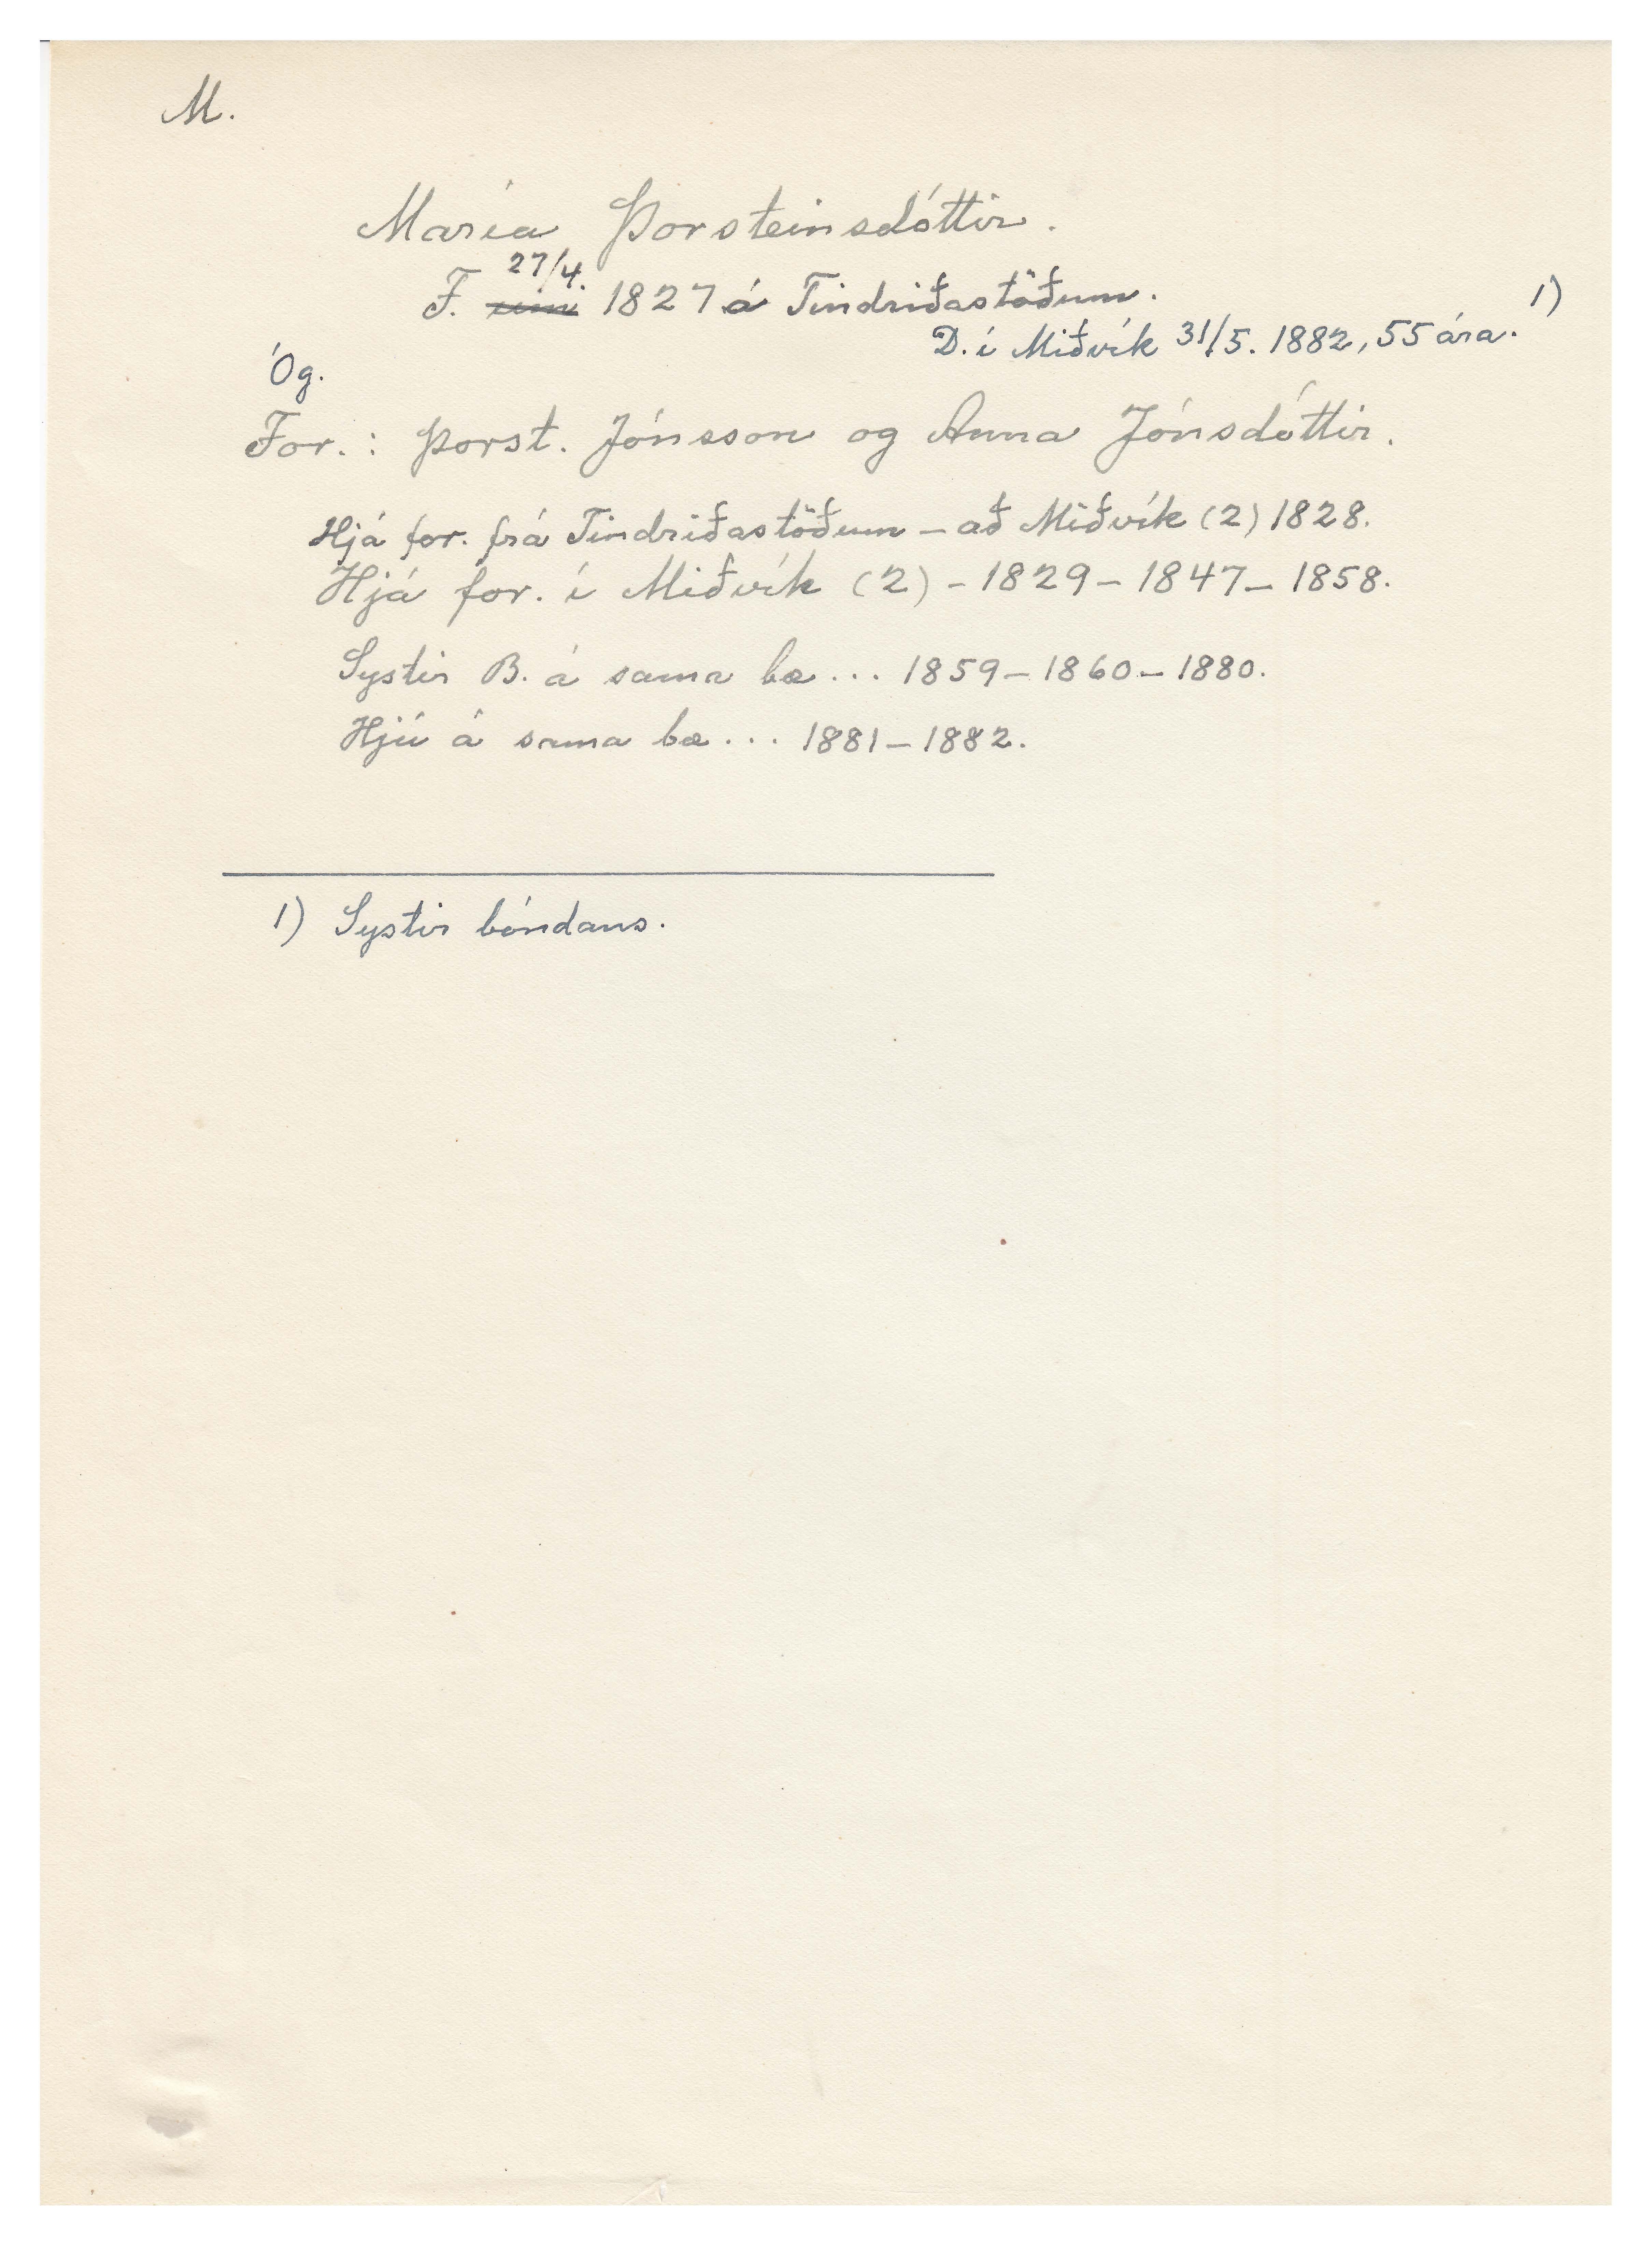 M.
María Þorsteinsdóttir.
27/4.
F. um 1827 á Tindriðastöðum.
D. í Miðvík 31/5. 1882, 55 ára. 1)
Óg.
For.: Þorst. Jónsson og Anna Jónsdóttir.
Hjá for. frá Tindriðastöðum – að Miðvík (2) 1828.
Hjá for. í Miðvík (2) – 1829 – 1847 – 1858.
Systir B. á sama bæ... 1859 – 1860 – 1880.
Hjú á sama bæ... 1881 – 1882.
1) Systir bóndans.